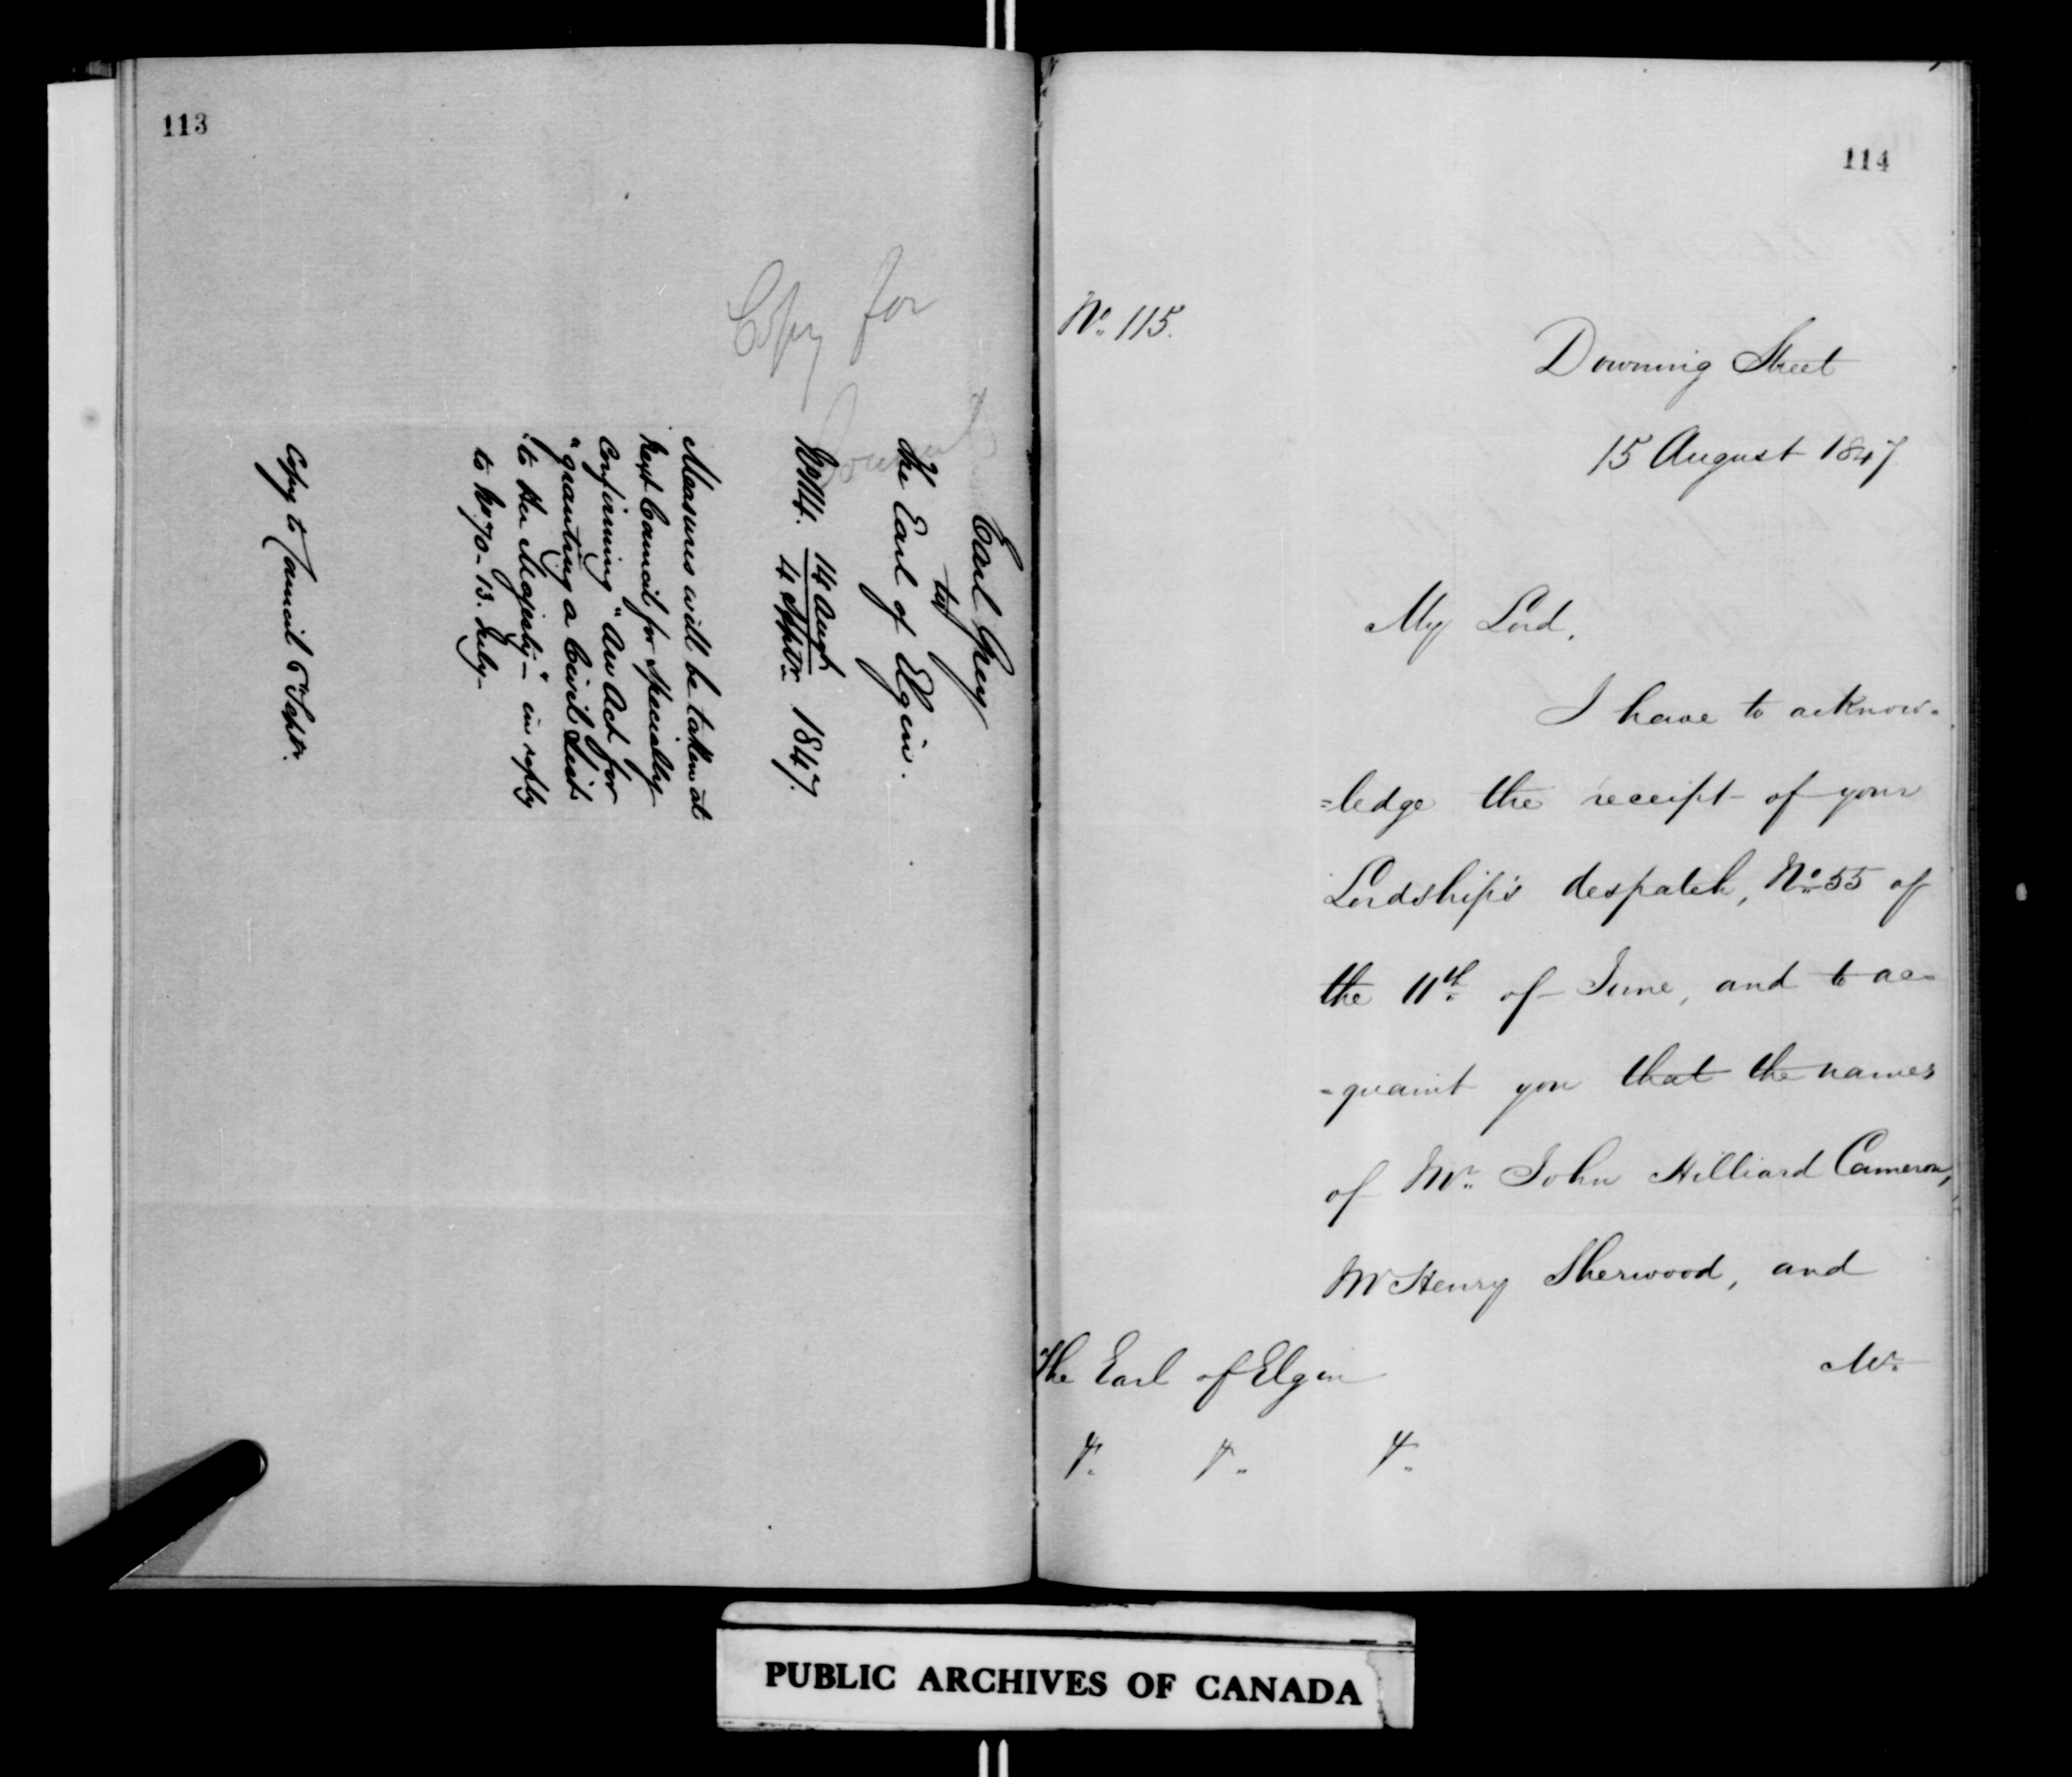 113
Copy for
Council
Earl Grey
to
The Earl of Elgin.
No 114. 14 Augt
4 Septr 1847.
Measures will be taken at
next Council for specially
confirming "An Act for
"granting a Civil List
"to Her Majesty-" in reply
to No 70-13. July-
Copy to Council 6 Septr.
114
No. 115.
Downing Street
15 August 1847
My Lord,
I have to acknow-
=ledge the receipt of your
Lordship's despatch, No. 55 of
the 11th of June, and to ac=
=quaint you that the names
of Mr. John Hilliard Cameron,
Mr Henry Sherwood, and
Mr.
The Earl of Elgin
&. &. &.
PUBLIC ARCHIVES OF CANADA